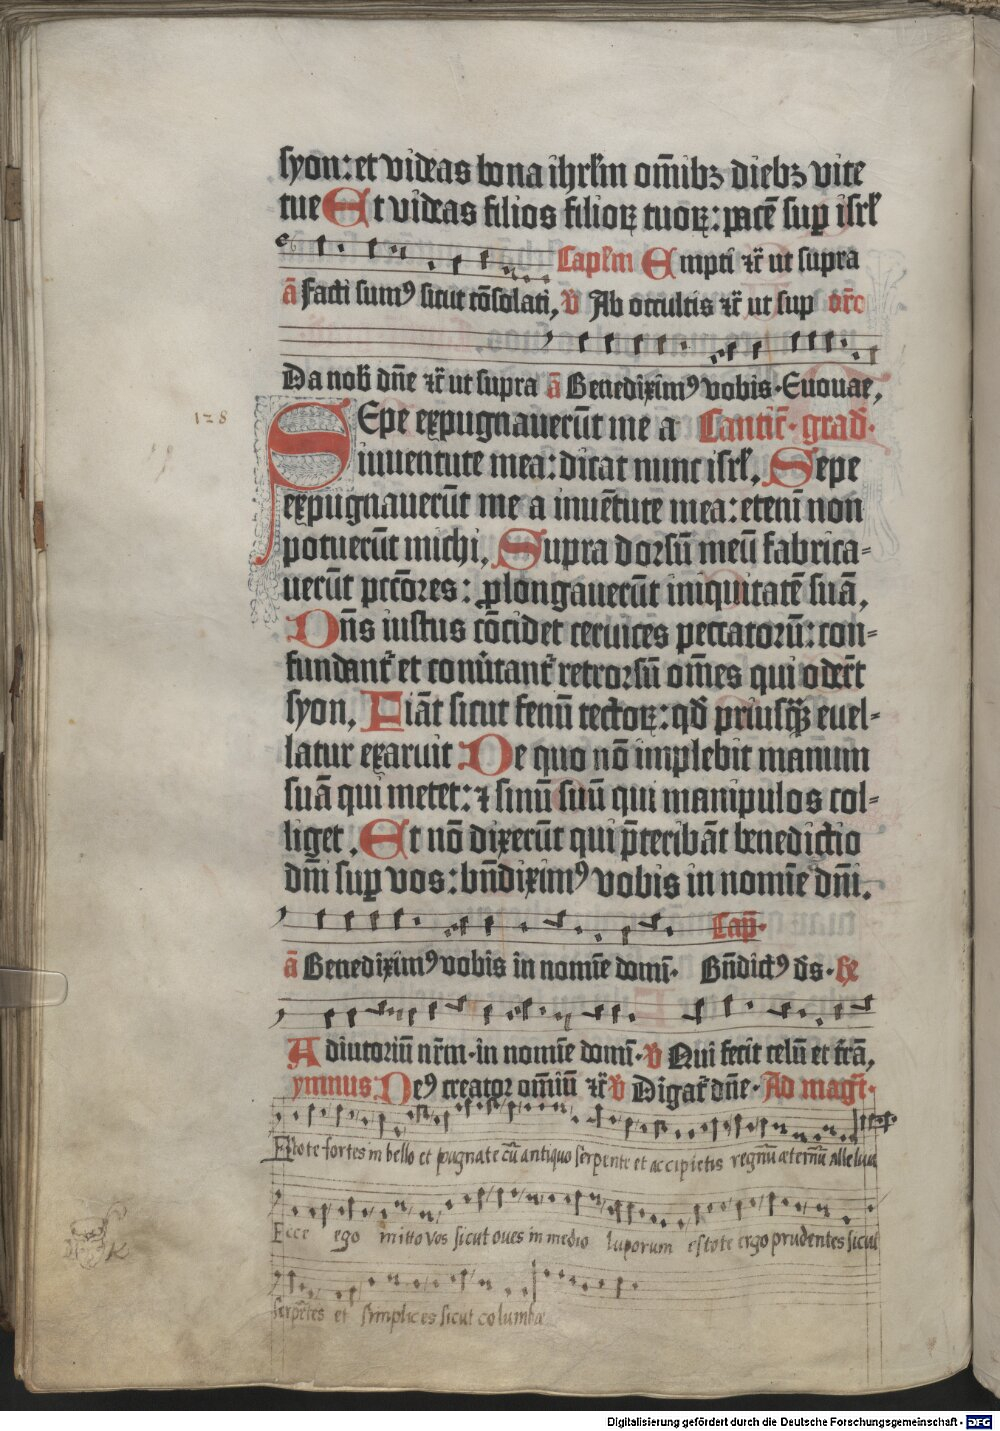 syon: et videas bona ihrłm om̄ibꝫ diebꝫ vite
tue Et videas filios filioꝝ tuoꝝ: pacē suꝑ isrł
Capłm Empti ⁊c̄ ut supra
ā Facti sumꝰ sicut cōsolati, v̄ Ab occultis ⁊c̄ ut sup or̄o
Da nob̄ dn̄e ⁊c̄ ut supra ā Benediximꝰ vobis. Euouae,
128
SEpe expugnauerūt me a Cantic̄. grad̄.
iuuentute mea: dicat nunc isrł, Sepe
expugnauerūt me a iuuētute mea: eteni non
potuerūt michi, Supra dorsū meū fabrica=
uerūt pcc̄ores: ꝓlongauerūt iniquitatē suā,
Dn̄s iustus cōcidet ceruices peccatorū: con=
fundant᷑ et conu̓tant᷑ retrorsū om̄es qui oder̄t
syon, Fiāt sicut fenū tectoꝝ: qd̄ priusqꝫ euel=
latur exaruit De quo nō implebit manum
suā qui metet: ⁊ sinū suū qui manipulos col=
liget, Et nō dixerūt qui p̄teribāt benedictio
dn̄i suꝑ vos: bn̄diximꝰ vobis in nomīe dn̄i.
Cap̄.
ā Benediximꝰ vobis in nomīe domī. Bn̄dictꝰ d̄s. he
Adiutoriū nr̄m. in nomīe domī. v̄ Qui fecit celū et t̄rā,
ymnus: Deꝰ creator om̄iū ⁊c̄ v̄ Dīgat᷑ dn̄e. Ad magt̄.
Estote fortes in bello et pugnate cū antiquo sērpente et accipietis regnū æternū Alleluia
Ecce ego mitto vos sicut oues in medio luporum estote ergo prudentes sicut
serpētes et simplices sicut columbæ
K
Digitalisierung gefördert durch die Deutsche Forschungsgemeinschaft - DFG